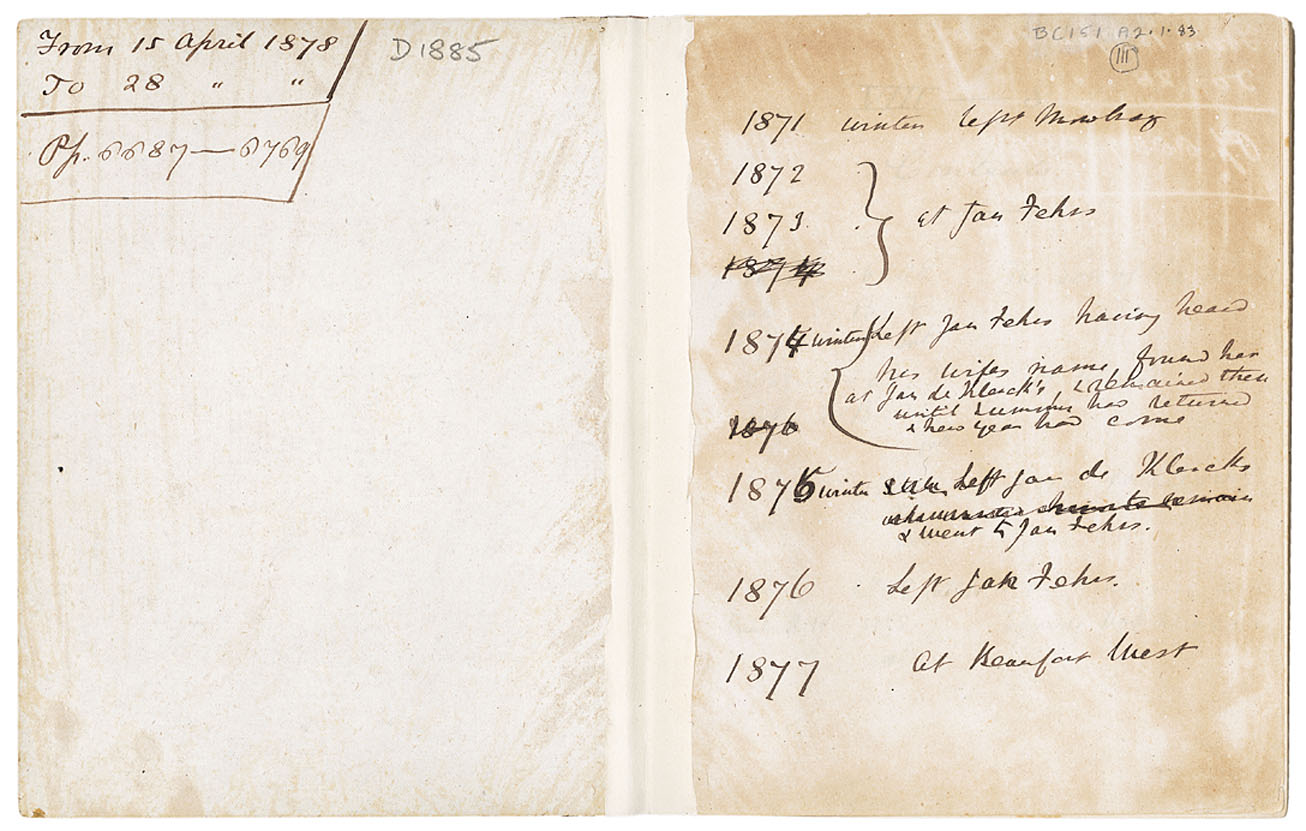 From 15 April 1878
To 28 " "
Pp. 6687—6769
D1885
BC151 A2.1.83
III
1871 winter left Mowbray
1872
1873
at Jan Fehrs
1874
1874 winter Left Jan Fehrs having heard
his wifes name, found her
at Jan de Klerck's & remained there
until summer has returned
& new year had come
1876
1875 winter Left Jan de Klercks
& went to Jan Fehrs.
1876 Left Jan Fehrs.
1877 At Beaufort West